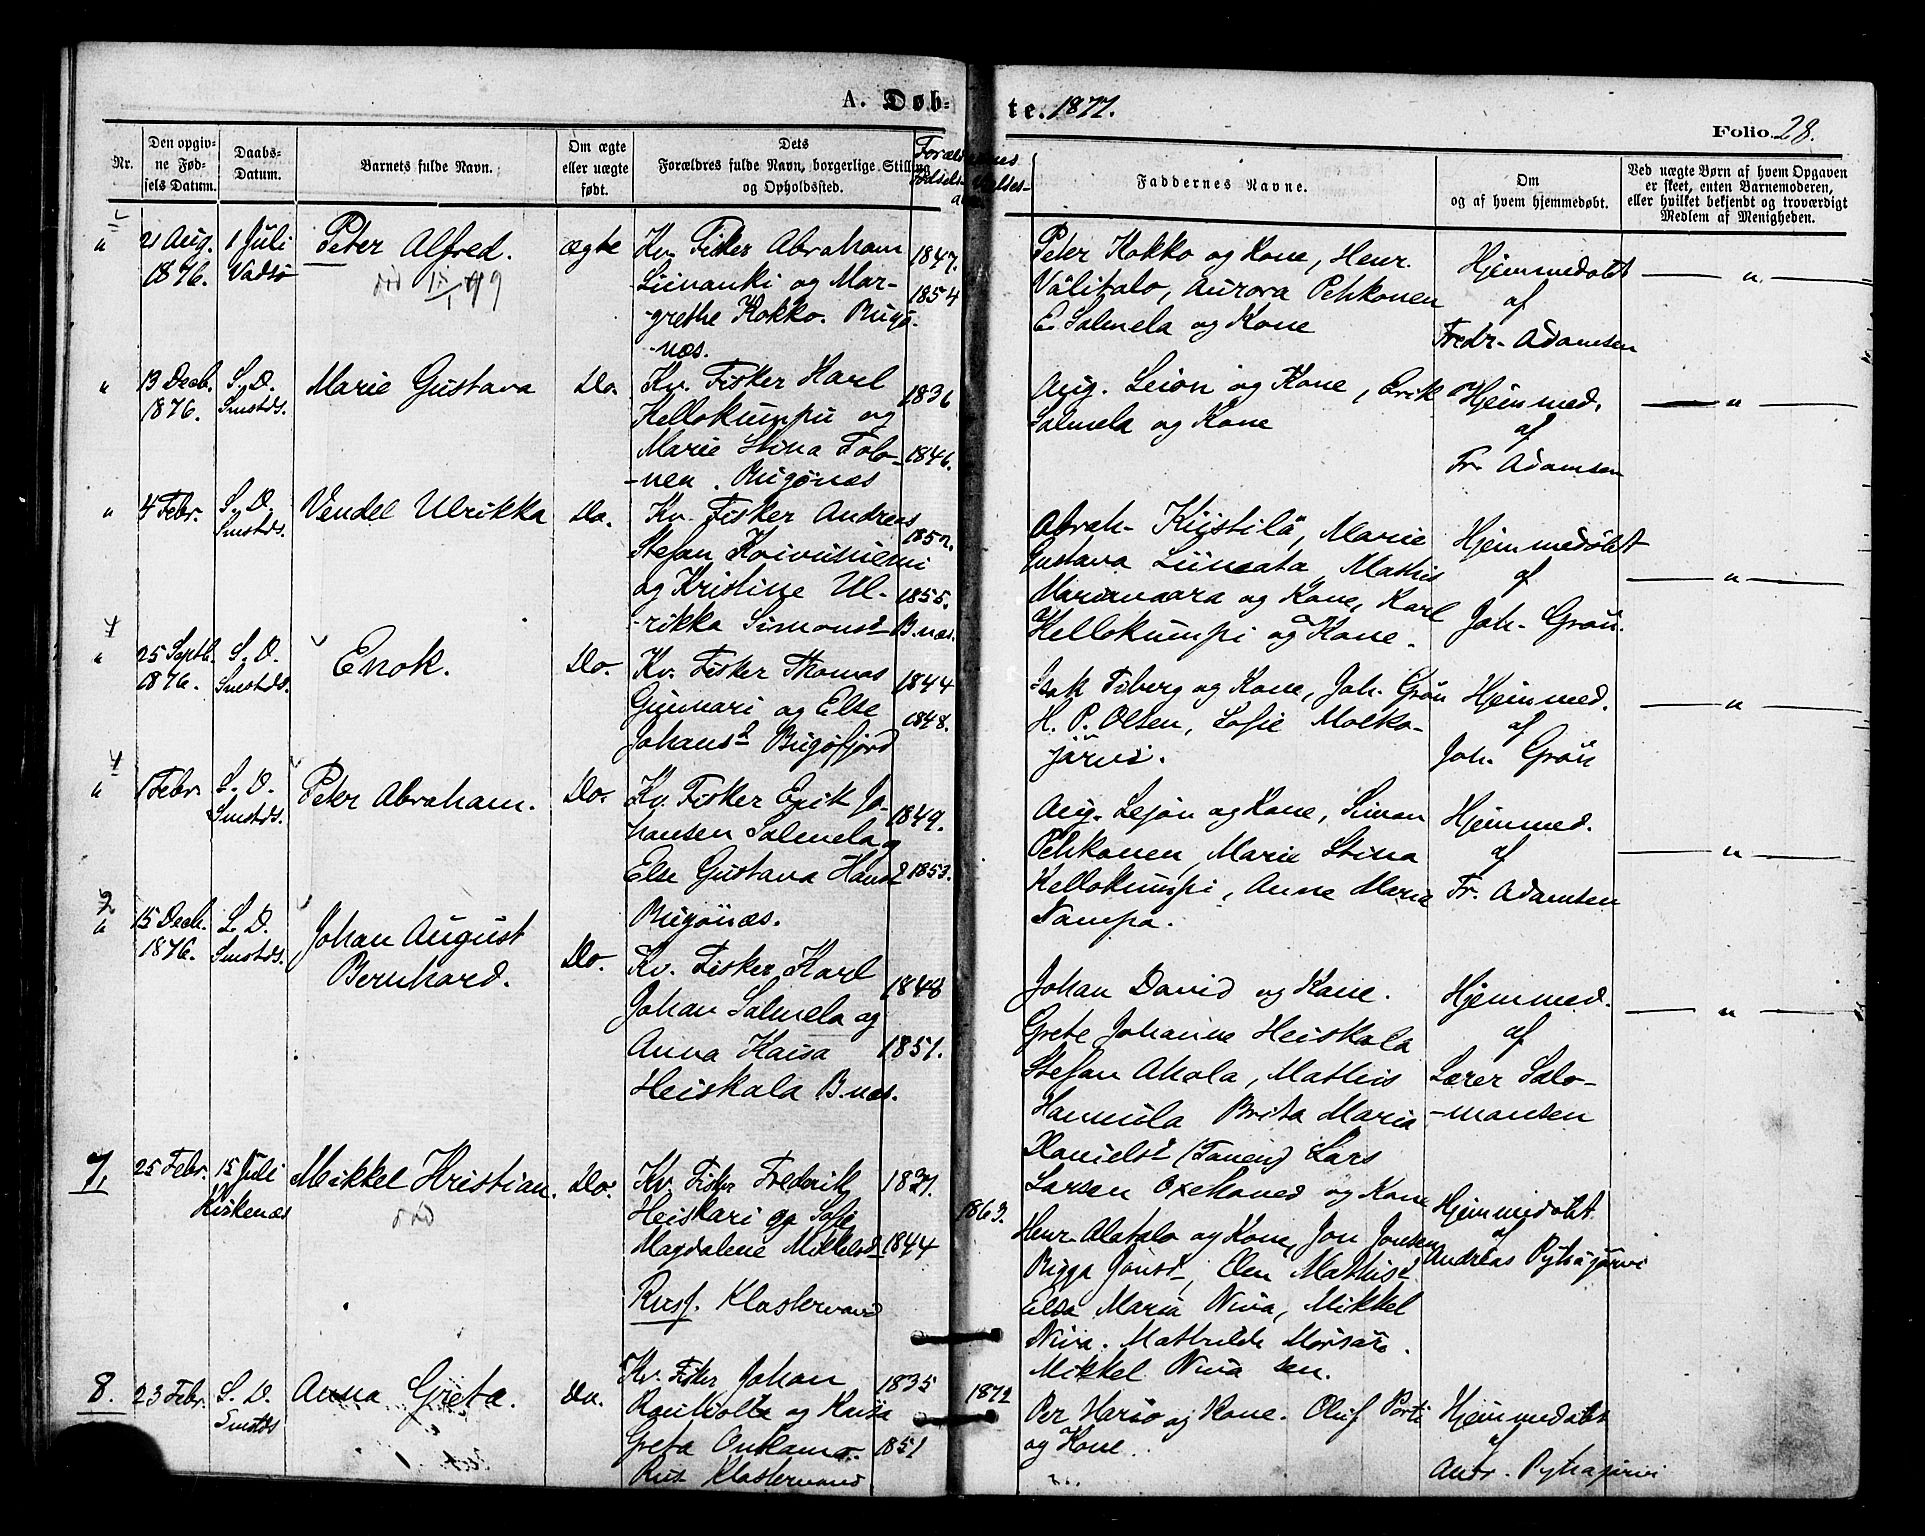 A. Døbte. 1877.
Folio 28.
Nr.
Den opgivne Fødsels Datum.
Daabs-Datum.
Barnets fulde Navn.
Om ægte eller uægte født.
Dets Forældres fulde Navn, borgerlige Stilling og Opholdssted.
Faddernes Navne.
Om og af hvem hjemmedøbt.
Ved uægte Børn af hvem Opgaven er skeet, enten Barnemoderen, eller hvilket bekjendt og troværdigt Medlem af Menigheden.
" 21 Aug. 1876. 1 Juli Vadsø Peter Alfred. ægte
Kv. Fisker Abraham 1847.
Liinanki og Mar- 1854
-grethe Kokko. Bugø-
-næs.
Peter Kokko og Kone, Henr.
Välitalo, Aurora Pehkonen
E. Salmela og Kone
Hjemmedøbt
af
Fredr. Adamsen
— " —
" 13 Decb. 1876. S. D. Smstds. Marie Gustava Do.
Kv. Fisker Karl 1836
Kellokumpu og
Marie Stina Tolo- 1846.
-nen. Bugönæs
Aug. Leion og Kone, Erik
Salmela og Kone
Hjemmed.
af
Fr. Adamsen
— " —
" 4 Febr. S. D. Smstds. Vendel Ulrikka Do.
Kv. Fisker Andreas 1852.
Stefan Koivuniemi
og Kristine Ul- 1855.
-rikka Simonsd B.næs.
Abrah. Kustilä, Marie
Gustava Liimata, Mathis
og Kone, Karl
Kellokumpi og Kone.
Hjemmedöbt
af
Joh. Grön.
— " —
" 25 Septb. 1876. S. D. Smstds. Enok. Do.
Kv. Fisker Thomas 1844
Gunnari og Else 1848.
Johansd Bugöfjord
Isak Tiberg og Kone, Joh. Grön
H. P. Olsen, Sofie Molko-
järvi.
Hjemmed.
af
Joh. Grön
— " —
" 1 Febr. S. D. Smstds. Peter Abraham. Do.
Kv. Fisker Erik Jo-
hansen Salmela og 1849.
Else Gustava Hansd 1853.
Bugönæs.
Aug. Lejon og Kone, Simon
Pehkonen, Marie Stina
Kellokumpi, Anne Marie
Nampa.
Hjemmed.
af
Fr. Adamsen
— " —
" 15 Decb. 1876. S. D. Smstds. Johan August Bernhard. Do.
Kv. Fisker Karl 1848
Johan Salmela og
Anna Kaisa 1851.
Heiskala B.næs.
Johan David og Kone.
Grete Johanne Heiskala
Stefan Ahola, Mathis
Hannula Brita Maria
Danielsd Lars
Larsen Oxehoved og Kone
Hjemmed.
af
Lærer Salo-
-monsen
— " —
7. 25 Febr. 15 Juli Kirkenæs Mikkel Kristian. Do.
død
Kv. Fisker Frederik 1837.
Heiskari og Sofie 1863.
Magdalene Mikkelsd 1844
Russf. Klostervand
Henr. Alatalo og Kone, Jon Jonsen
Bigga Jonsd, Elen Mathisd
Elsa Maria Niva, Mikkel
Niva. Mathilde
Mikkel Niva sen.
Hjemmedøbt
af
Andreas Pyhäjärvi
8. 23 Febr. S. D. Smstds Anna Greta. Do.
Kv. Fisker Johan 1835 1872
og Kaisa
Greta 1851
Rus Klostervand
Per og Kone. Oluf Porti
og Kone.
Hjemmedøbt
af
Andr. Pyhäjärvi